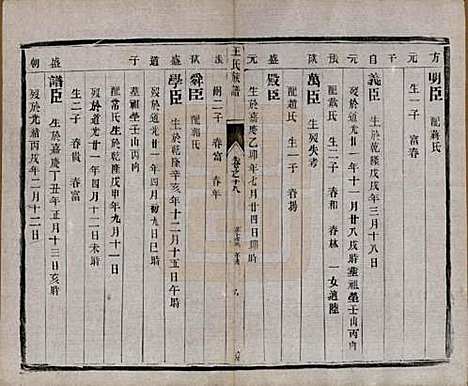 方 明臣 配蔣氏
元 生一子 富春
子
自 義臣 生於乾隆戊戌年三月十八日
歿於道光廿一年十一月廿八戌時葬祖塋壬山丙向
配戴氏 生二子 春和 春林 一女適陸
萬臣 生歿失考
配趙氏 生一子 春楊
元 殿臣 生於嘉慶乙卯年七月廿四日
王氏族譜
卷之十八
嗣二子 春富 春年
舜臣 配蔣氏
盛 學臣 生於乾隆辛亥年十二月十五日午時
道 歿於道光廿一年四月初九日巳時
葬祖塋壬山丙向
子 配常氏 生於乾隆戊申年九月十一日
歿於道光廿一年四月十一日未時
生二子 春富 春貴
盛 譜臣 生於嘉慶丁丑年正月十三日亥時
朝 歿於光緒丙戌年二月十二日